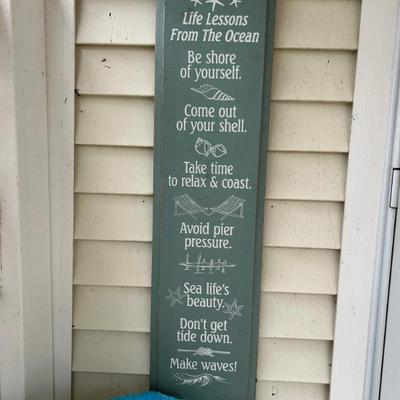 Life Lessons
From The Ocean
Be shore
of yourself.
Come out
of your shell.
Take time
to relax & coast.
Avoid pier
pressure.
Sea life's
beauty.
Don't get
tide down.
Make waves!